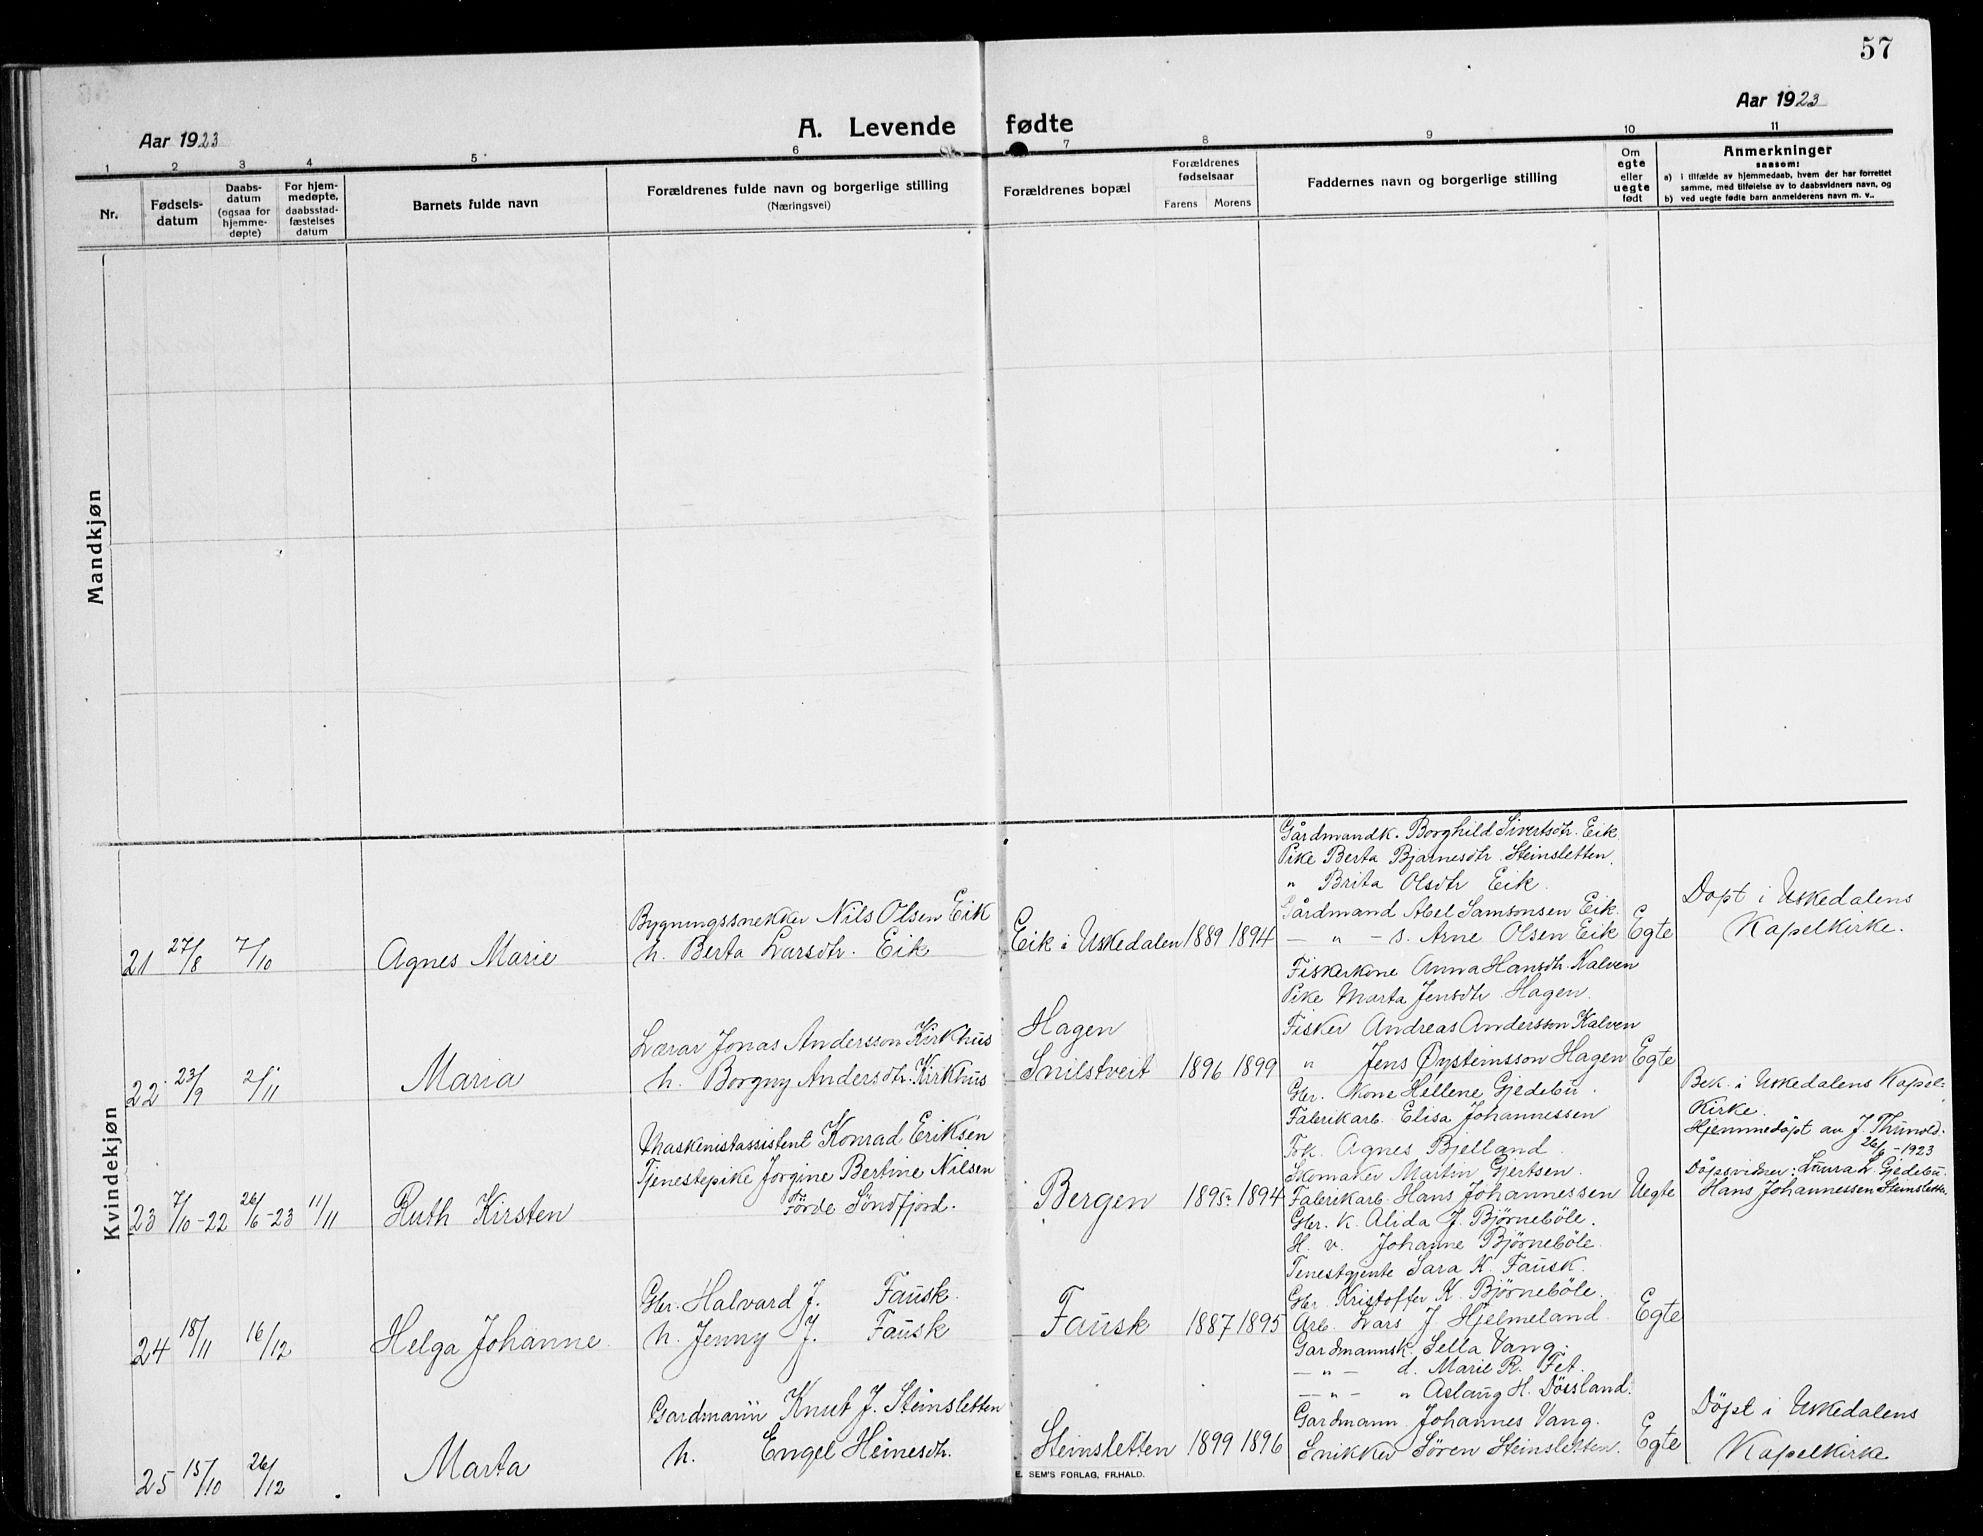 57
Aar 1923
Aar 1923
A. Levende fødte
1 2 3 4 5 6 7 8 9 10 11
Nr.
Fødsels-
datum
Daabs-
datum
(ogsaa for
hjemme-
døpte)
For hjem-
medøpte,
daabsstad-
fæstelses
datum
Barnets fulde navn
Forældrenes fulde navn og borgerlige stilling
(Næringsvei)
Forældrenes bopæl
Forældrenes
fødselsaar
Farens Morens
Faddernes navn og borgerlige stilling
Om
egte
eller
uegte
født
Anmerkninger
saasom:
a) i tilfælde av hjemmedaab, hvem der har forrettet
samme, med tilføielse av to daabsvidners navn, og
b) ved uegte fødte barn anmelderens navn m. v..
Mandkjøn
Kvindekjøn
21 27/8 7/10 Agnes Marie
Bygningssnekker Nils Olsen Eik
h. Berta Larsdtr. Eik
Eik i Uskedalen 1889 1894
Gårdmandk. Borghild Sivertsdtr. Eik
Pike Berta Bjarnesdtr Steinsletten.
" Brita Olsdtr Eik.
Gårdmand Abel Samsonsen Eik.
— " — s. Arne Olsen Eik
Egte
Døpt i Uskedalens
Kapelkirke.
22 23/9 2/11 Maria
Lærar Jonas Andersson Kirkhus
h. Borgny Andersdtr. Kirkhus
Hagen
Snilstveit 1896 1899
Fiskerkone Anna Hansdtr. Kalven
Pike Marta Jensdtr Hagen.
Fisker Andreas Andersson Kalven
" Jens Øysteinsson Hagen
Egte
23 7/10-22 26/6-23 11/11 Ruth Kirsten
Maskenistassistent Konrad Eriksen
Tjenestepike Jørgine Bertine Nilsen
Förde Söndfjord.
Bergen 1895 1894
Gbr. Kone Hellene Gjedebu
Fabrikarb. Elisa Johannessen
Frk. Agnes Bjelland.
Skomaker Martin Gjertsen.
Fabrikarb. Hans Johannessen
Uegte
Bek. i Uskedalens Kapel-
kirke.
Hjemmedöpt av J. Thunold.
26/6-1923
Döpsvidner: Laura L. Gjedebu.
Hans Johannessen Steinsletten
24 18/11 16/12 Helga Johanne
Gbr. Halvard J. Fausk.
h. Jenny J. Fausk
Fausk 1887 1895
Gbr. k. Alida J. Björneböle.
H. v. Johanne Björneböle.
Tenestgjente Sara K. Fausk.
Gbr. Kristoffer K. Björneböle.
Arb. Lars J. Hjelmeland
Egte
25 15/10 26/12 Marta
Gardmann Knut J. Steinsletten
h. Engel Heinesdtr.
Steinsletten 1899 1896
Gardmannsk. Sella Vang.
— " — d. Marie R. Fet.
— " — " Aslaug H. Dössland.
Gardmann Johannes Vang.
Snikker Sören Steinsletten.
Egte
Döpt i Uskedalens
Kapelkirke
E. SEM'S FORLAG, FR.HALD.